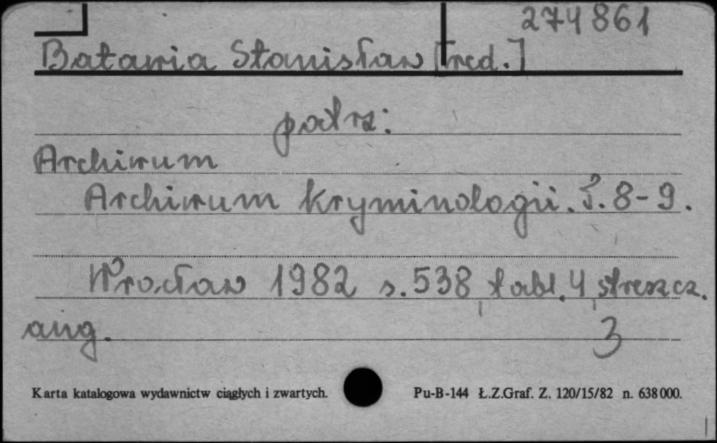 274861
Batawia Stanisław [red.]
patrz:
Archiwum
Archiwum Kryminologii. T. 8-9.
Wrocław 1982 s. 538, tabl. 4, streszcz.
ang. 3
Karta katalogowa wydawnictw ciągłych i zwartych. Pu-B-144 Ł.Z.Graf. Z. 120/15/82 n. 638000.